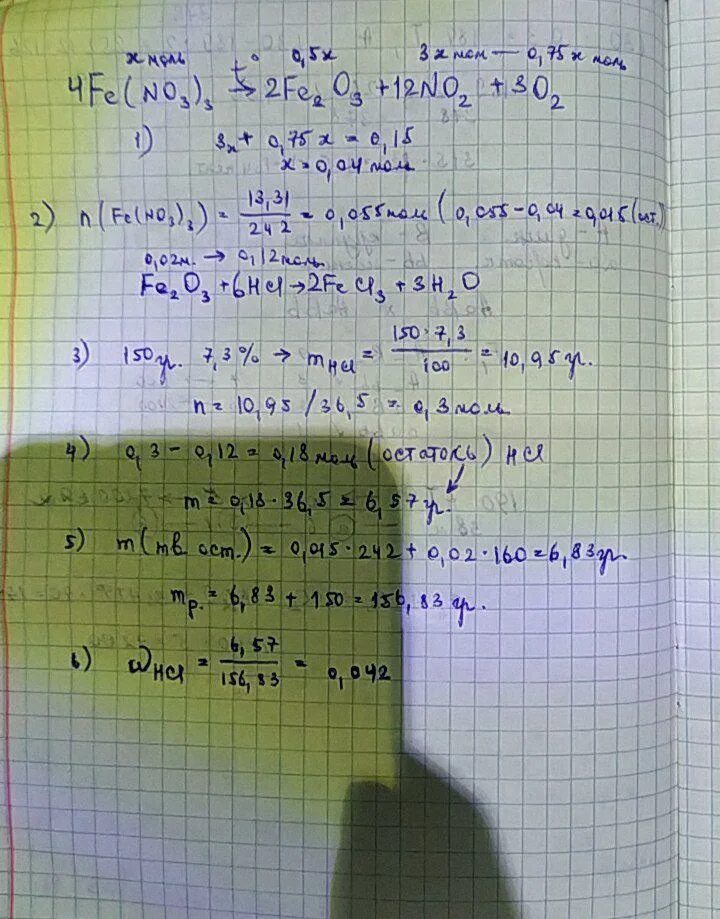 x моль 0,5x 3x мол — 0,75x моль
4Fe(NO₃)₃ →t° 2Fe₂O₃ + 12NO₂ + 3O₂
1) 3x + 0,75x = 0,15
x = 0,04 моль
2) n(Fe(NO₃)₃) = 13,31/242 = 0,055 мол (0,055-0,04=0,015 (ост.)
0,02м. → 0,12 моль
Fe₂O₃ + 6HCl → 2FeCl₃ + 3H₂O
3) 150 гр. 7,3% → m HCl = 150·7,3/100 = 10,95 гр.
n = 10,95 / 36,5 = 0,3 моль
4) 0,3 - 0,12 = 0,18 мол (остатокь) HCl
m = 0,18·36,5 = 6,57 гр.
5) m(тв ост.) = 0,015·242 + 0,02·160 = 6,83 гр.
mр. = 6,83 + 150 = 156,83 гр.
6) ω HCl = 6,57/156,83 = 0,042